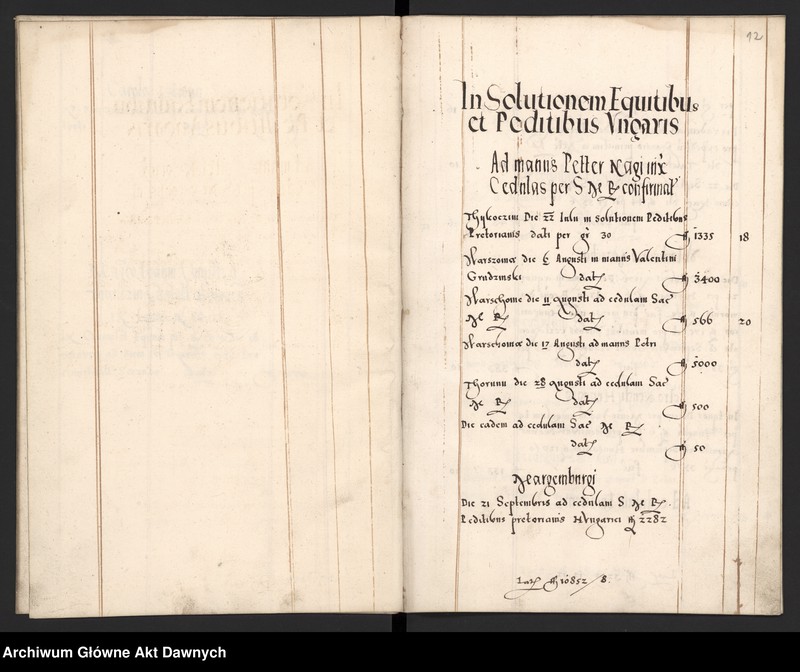 12
In Solutionem Equitibus
et Peditibus Vngaris
Ad manus Petter Nagi
Cedulas per S M R confirmat
Thykoczini Die 22 Iulii in solutionem Peditibus
Pretorianis dati per gr 30 fl 1335 18
Warszowiæ die 6 Augusti in manus Valentini
Grudzinski dat fl 3400
Warschoviæ die 11 Augusti ad cedulam Sac
M R dat fl 566 20
Warschoviæ die 17 Augusti ad manus Petri
dat fl 5000
Thorunii die 28 Augusti ad cedulam Sac
M R dat fl 500
Die eadem ad cedulam Sac M R
dat fl 50
Meargemburgi
Die 21 Septembris ad cedulam S M R
Peditibus pretorianis Hungarici fl 2282
Lat fl 10852 / 8.
Archiwum Główne Akt Dawnych